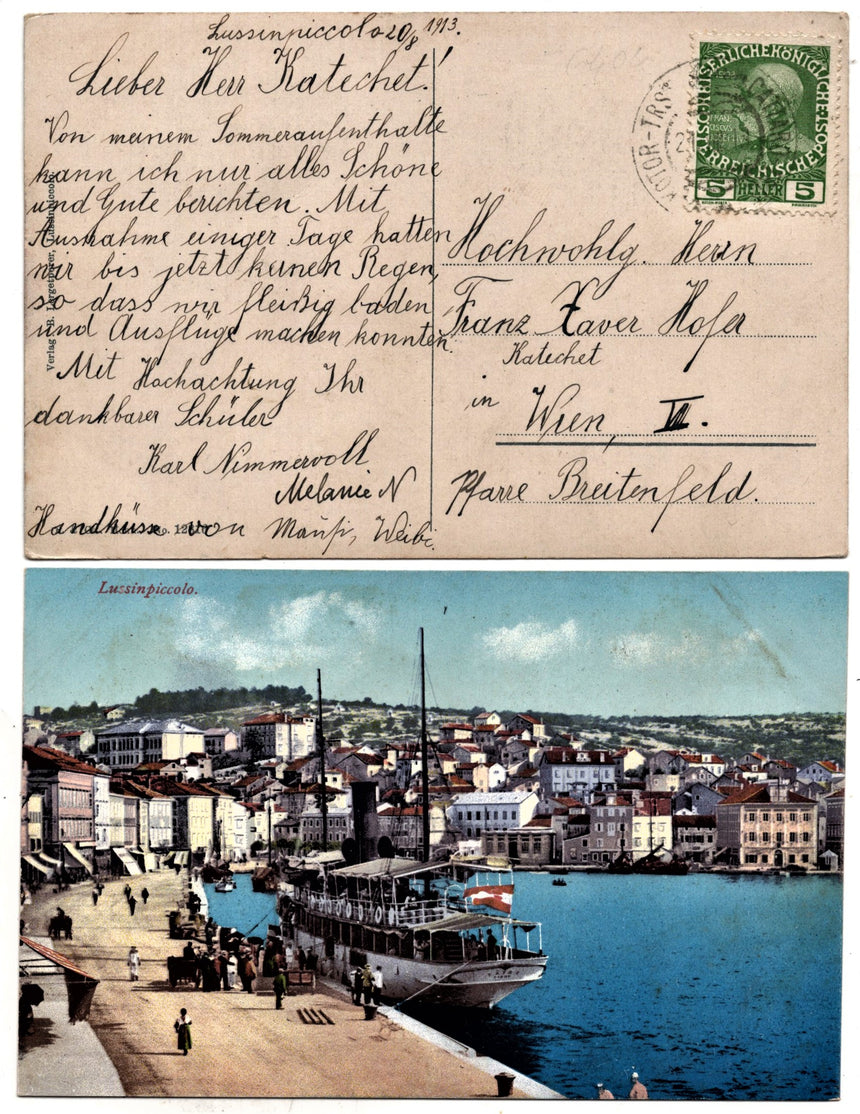 Lussinpiccolo 20/8 1913.
Lieber Herr Katechet!
Von meinem Sommeraufenthalte
kann ich nur alles Schöne
und Gute berichten. Mit
Ausnahme einiger Tage hatten
wir bis jetzt keinen Regen,
so dass wir fleißig baden
und Ausflüge machen konnten.
Mit Hochachtung Ihr
dankbarer Schüler
Karl Nimmervoll
Melanie N
Handküsse von
Verlag
Lussinpiccolo.
KAISERLICHE KÖNIGLICHE
ÖSTERREICHISCHE
5 HELLER 5
Hochwohlg. Herrn
Franz Xaver Hofer
Katechet
in
Wien, VIII.
Pfarre Breitenfeld.
Lussinpiccolo.